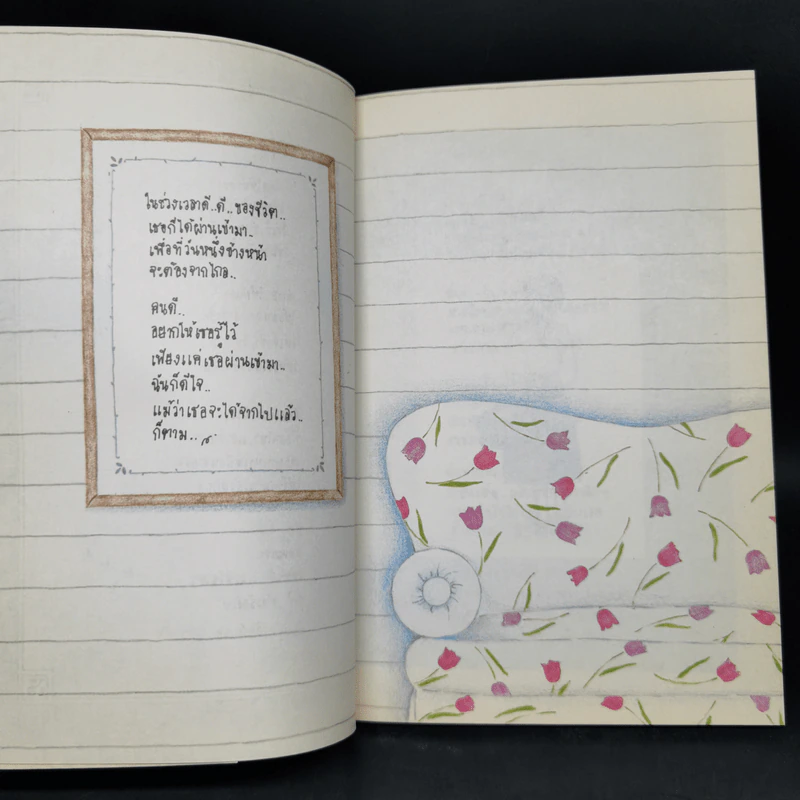 ในช่วงเวลาดี..ดี..ของชีวิต..
เธอก็ได้ผ่านเข้ามา..
เพื่อที่วันหนึ่งข้างหน้า
จะต้องจากไกล..
คนดี..
อยากให้เธอรู้ไว้
เพียงแค่เธอผ่านเข้ามา..
ฉันก็ดีใจ..
แม้ว่าเธอจะได้จากไปแล้ว..
ก็ตาม..